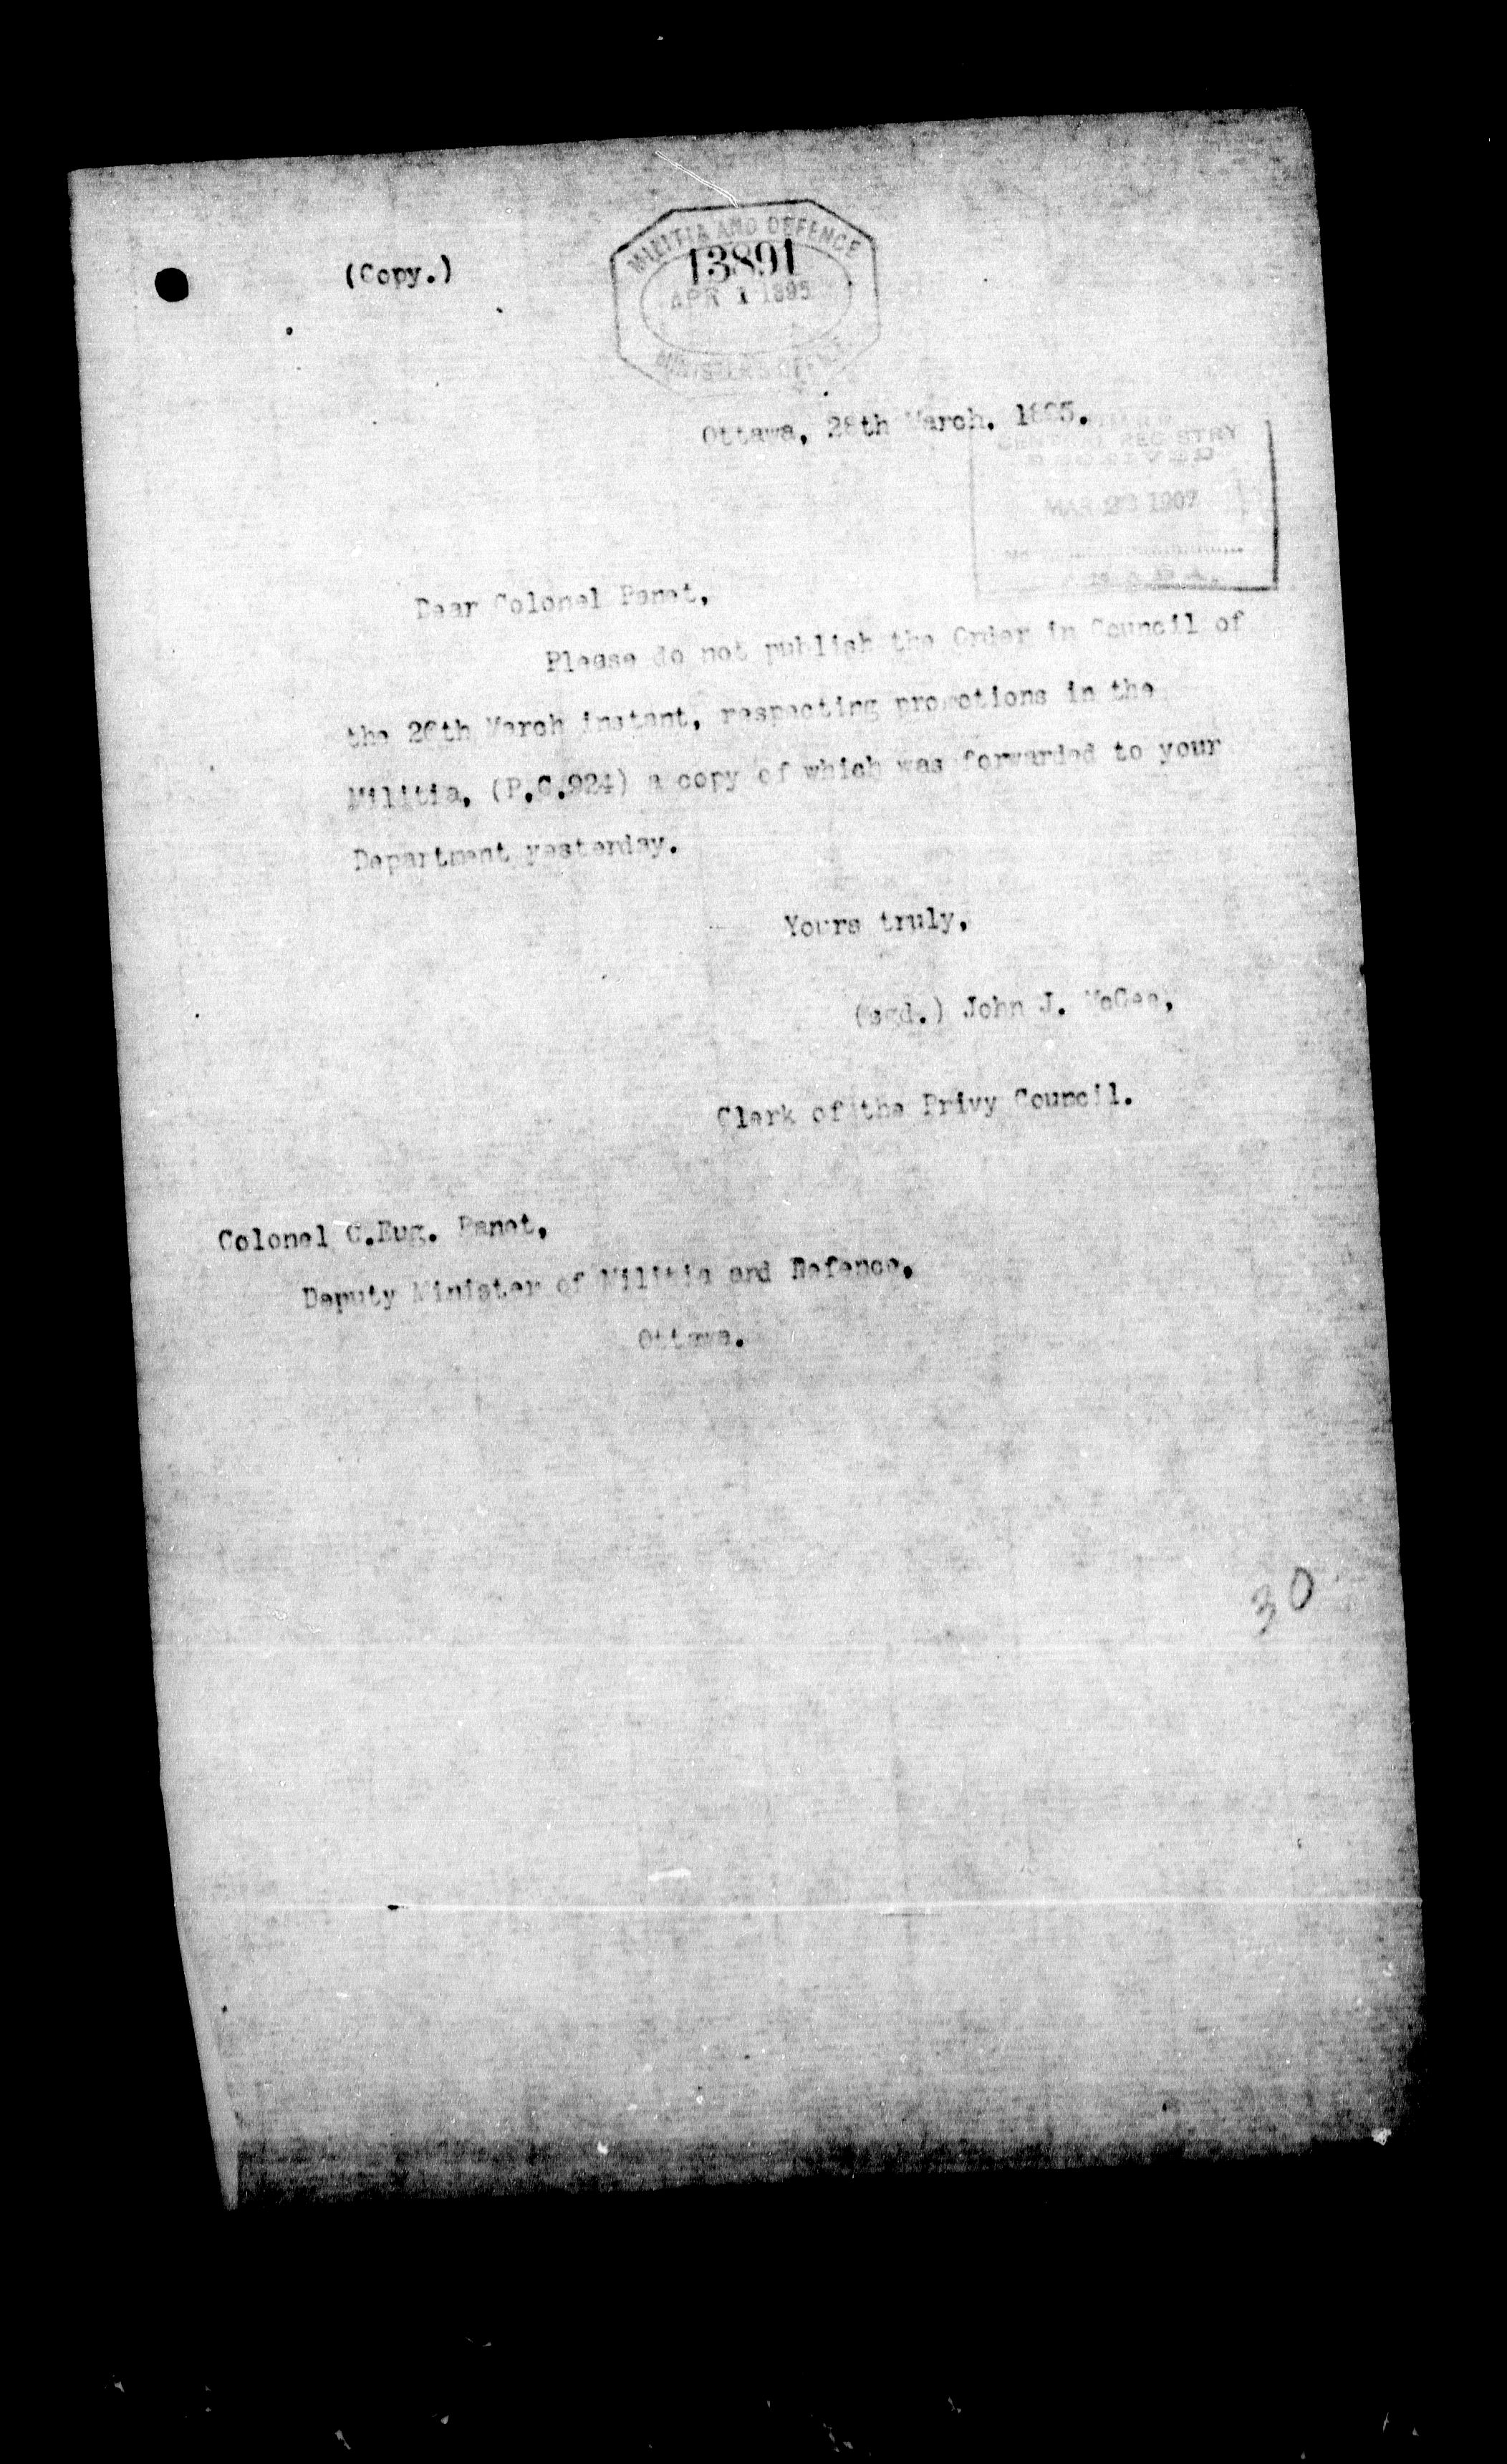 (Copy.)
MILITIA AND DEFENCE
13891
APR 1 1895
MINISTER'S OFFICE
Ottawa, 28th March, 1895.
CENTRAL REGISTRY
RECEIVED
MAR 1907
Dear Colonel Panet,
Please do not publish the Order in Council of
the 26th March instant, respecting promotions in the
Militia, (P.C.924) a copy of which was forwarded to your
Department yesterday.
Yours truly,
(sgd.) John J. McGee,
Clerk of the Privy Council.
Colonel C.Eug. Panet,
Deputy Minister of Militia and Defence,
Ottawa.
30